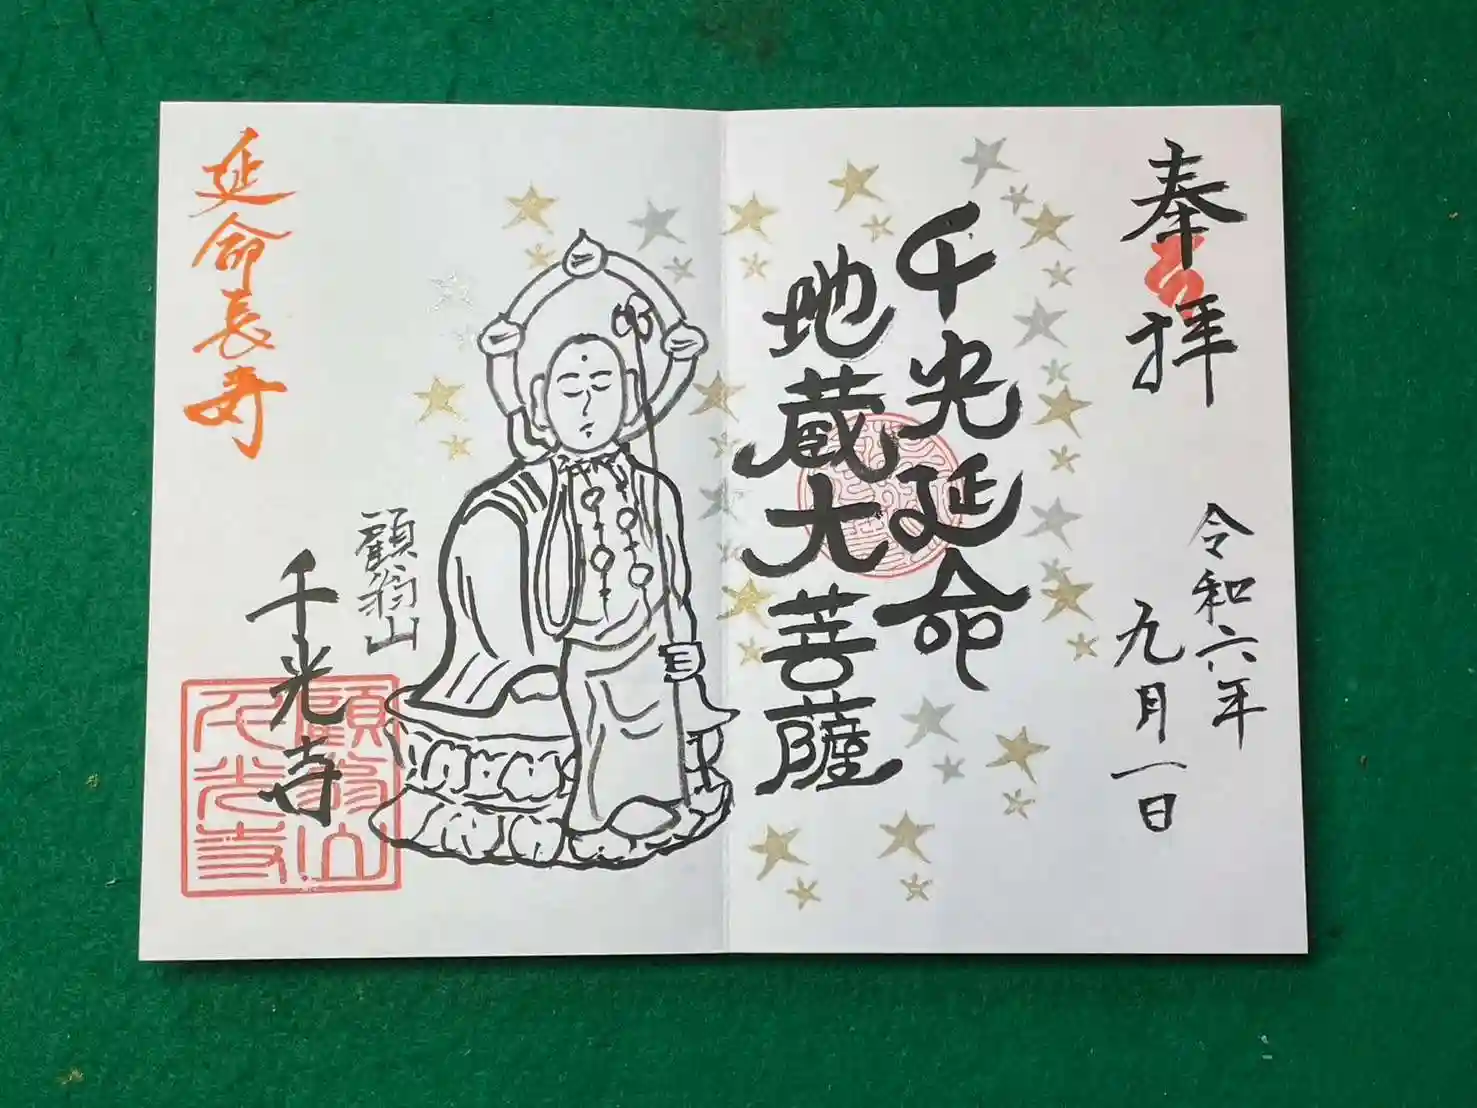 奉拝
令和六年
九月一日
千光延命
地蔵大菩薩
顧翁山
千光寺
延命長寿
顧翁山
千光寺